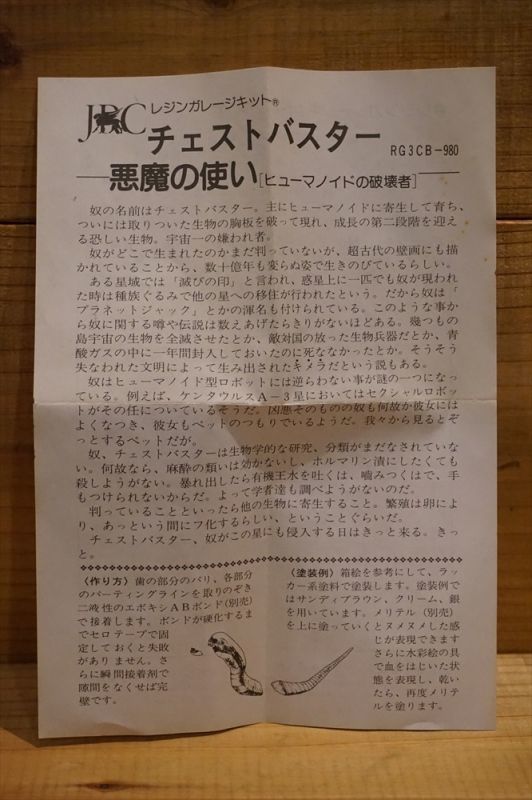 JDC レジンガレージキット®
チェストバスター
RG3CB-980
悪魔の使い[ヒューマノイドの破壊者]
奴の名前はチェストバスター。主にヒューマノイドに寄生して育ち、
ついには取りついた生物の胸板を破って現れ、成長の第二段階を迎え
る恐しい生物。宇宙一の嫌われ者。
奴がどこで生まれたのかまだ判っていないが、超古代の壁画にも描
かれていることから、数十億年も変らぬ姿で生きのびているらしい。
ある星域では「滅びの印」と言われ、惑星上に一匹でも奴が現われ
た時は種族ぐるみで他の星への移住が行われたという。だから奴は「
プラネットジャック」とかの渾名も付けられている。このような事か
ら奴に関する噂や伝説は数えあげたらきりがないほどある。幾つもの
島宇宙の生物を全滅させたとか、敵対国の放った生物兵器だとか、青
酸ガスの中に一年間封入しておいたのに死ななかったとか。そうそう
失なわれた文明によって生み出されたキメラだという説もある。
奴はヒューマノイド型ロボットには逆らわない事が謎の一つになっ
ている。例えば、ケンタウルスA-3星においてはセクシャルロボッ
トがその任についているそうだ。凶悪そのものの奴も何故か彼女には
よくなつき、彼女もペットのつもりでいるようだ。我々から見るとぞ
っとするペットだが。
奴、チェストバスターは生物学的な研究、分類がまだなされていな
い。何故なら、麻酔の類いは効かないし、ホルマリン漬にしたくても
殺しようがない。暴れ出したら有機王水を吐くは、噛みつくはで、手
もつけられないからだ。よって学者達も調べようがないのだ。
判っていることといったら他の生物に寄生すること。繁殖は卵によ
り、あっという間にフ化するらしい、ということぐらいだ。
チェストバスター、奴がこの星にも侵入する日はきっと来る。きっ
と。
〈作り方〉歯の部分のバリ、各部分
のパーティングラインを取りのぞき
二液性のエポキシABボンド(別売)
で接着します。ボンドが硬化するま
でセロテープで固
定しておくと失敗
がありません。さ
らに瞬間接着剤で
隙間をなくせば完
璧です。
〈塗装例〉箱絵を参考にして、ラッ
カー系塗料で塗装します。塗装例で
はサンディブラウン、クリーム、銀
を用いています。メリテル(別売)
を上に塗っていくとヌメヌメした感
じが表現できます
さらに水彩絵の具
で血をはじいた状
態を表現し、乾い
たら、再度メリテ
ルを塗ります。